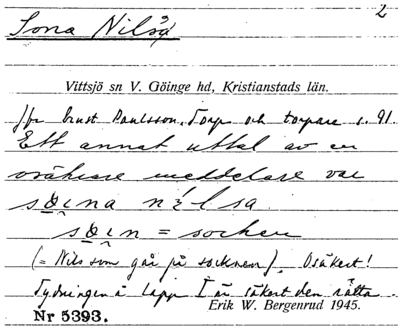 2
Sona Nilsa
Vittsjö sn V. Göinge hd, Kristianstads län.
Jfr Ernst Paulsson, Torp och torpare s. 91.
Ett annat uttal av en
osäkrare meddelare var
sɷɩna nɩ́lsa
sɷɩn = socken
(= Nils som går på socknen). Osäkert!
Tydningen å lapp I är säkert den rätta.
Erik W. Bergenrud 1945.
Nr 5393.